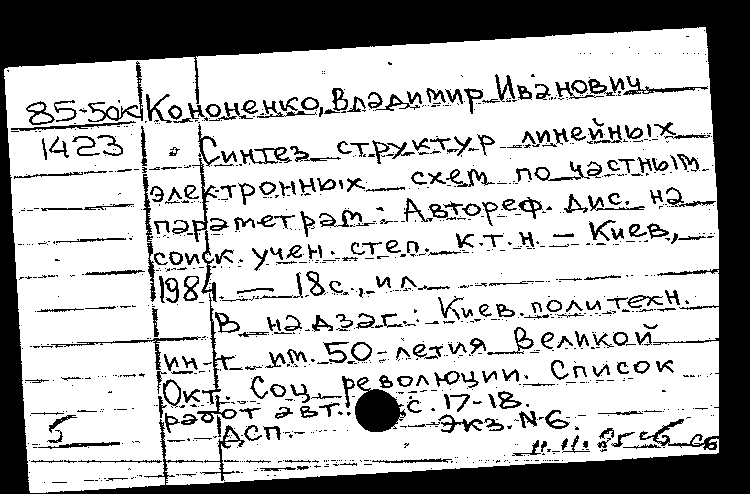 85-50к Кононенко, Владимир Иванович.
1423 Синтез структур линейных
электронных схем по частным
параметрам : Автореф. дис. на
соиск. учен. степ. к.т.н. — Киев,
1984 — 18с., ил.
В надзаг.: Киев. политехн.
ин-т им. 50-летия Великой
Окт. Соц. революции. Список
работ авт.: с. 17-18.
5 ДСП. Экз. №6.
11.11.85